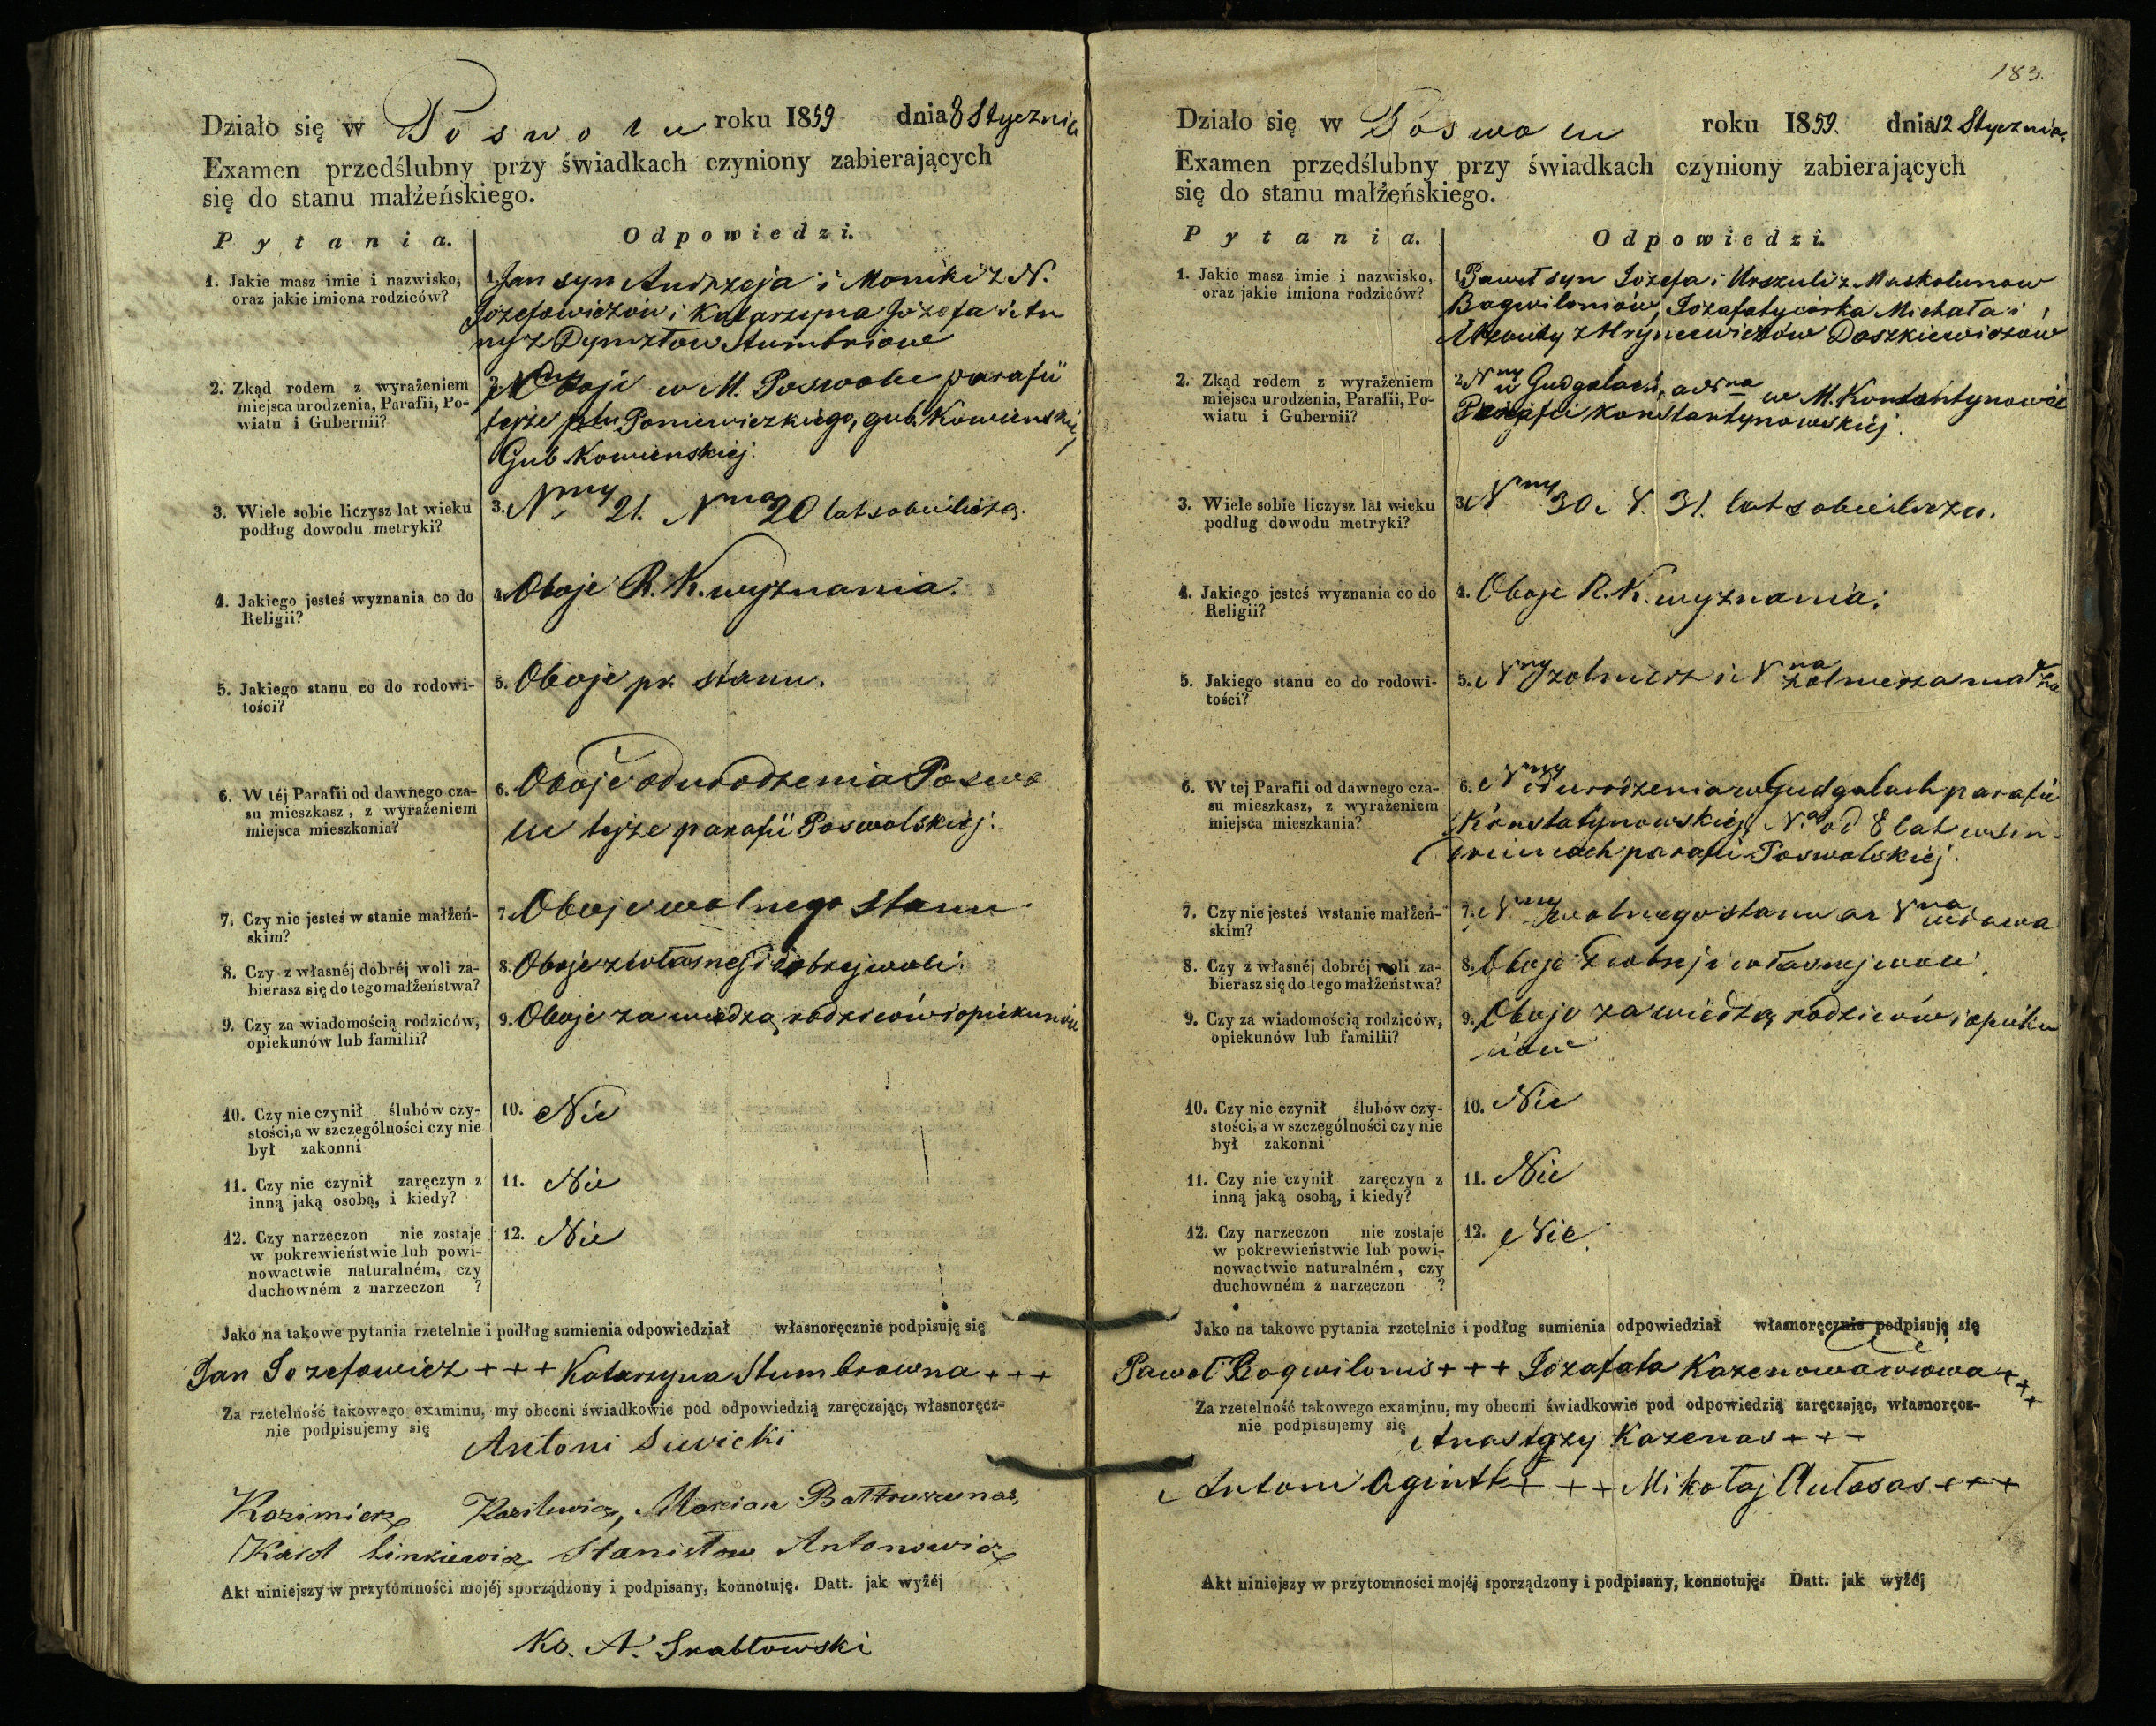 Działo się w Poswolu roku 1859 dnia 8 Stycznia
Examen przedślubny przy świadkach czyniony zabierających
się do stanu małżeńskiego.
Pytania.
Odpowiedzi.
1. Jakie masz imie i nazwisko,
oraz jakie imiona rodziców?
1. Jan syn Andrzeja i Moniki z N.
Józefowiczów i Katarzyna Józefa i An
ny z Dymszów Stumbriow
2. Zkąd rodem z wyrażeniem
miejsca urodzenia, Parafii, Po-
wiatu i Gubernii?
2. Oboje w M. Poswolu parafii
tejże ptu Poniewiezkiego, gub. Kowienskiej
Gub Kowienskiej.
3. Wiele sobie liczysz lat wieku
podług dowodu metryki?
3. Nny 21. Nna 20 lat sobie liczą.
4. Jakiego jesteś wyznania co do
Religii?
4. Oboje R. K. wyznania.
5. Jakiego stanu co do rodowi-
tości?
5. Oboje pr. stanu.
6. W téj Parafii od dawnego cza-
su mieszkasz, z wyrażeniem
miejsca mieszkania?
6. Oboje od urodzenia Poswo
lu tejże parafii Poswolskiej.
7. Czy nie jesteś w stanie małżeń-
skim?
7. Oboje wolnego stanu
8. Czy z własnéj dobréj woli za-
bierasz się do tego małżeństwa?
8. Oboje z własnej i dobrej woli.
9. Czy za wiadomością rodziców,
opiekunów lub familii?
9. Oboje za wiedzą rodziców i opiekunów
10. Czy nie czynił ślubów czy-
stości, a w szczególności czy nie
był zakonni
10. Nie
11. Czy nie czynił zaręczyn z
inną jaką osobą, i kiedy?
11. Nie
12. Czy narzeczon nie zostaje
w pokrewieństwie lub powi-
nowactwie naturalném, czy
duchowném z narzeczon ?
12. Nie
Jako na takowe pytania rzetelnie i podług sumienia odpowiedział własnoręcznie podpisuję się
Jan Jozefowicz +++ Katarzyna Stumbrowna +++
Za rzetelność takowego examinu, my obecni świadkowie pod odpowiedzią zaręczając, własnoręcz-
nie podpisujemy się
Antoni Siewicki
Kazimierz Marcian
Karol Linkiewicz Stanisław Antonowicz
Akt niniejszy w przytomności mojéj sporządzony i podpisany, konnotuję. Datt. jak wyżéj
Ks. A. Srabłowski
183.
Działo się w Poswolu roku 1859. dnia 12 Stycznia.
Examen przedślubny przy świadkach czyniony zabierających
się do stanu małżeńskiego.
Pytania.
Odpowiedzi.
1. Jakie masz imie i nazwisko,
oraz jakie imiona rodziców?
1. Paweł syn Józefa i Urszuli z Maskolunow
Bogwiloniów, Jozafaty córka Michała i
z Hryncewiczów Daszkiewiczów
2. Zkąd rodem z wyrażeniem
miejsca urodzenia, Parafii, Po-
wiatu i Gubernii?
2. Nny w Gudgalach, a Nna w M. Konstantynowie
Parafii Konstantynowskiej.
3. Wiele sobie liczysz lat wieku
podług dowodu metryki?
3. Nny 30 i N. 31. lat sobie liczą.
4. Jakiego jesteś wyznania co do
Religii?
4. Oboje R. K. wyznania.
5. Jakiego stanu co do rodowi-
tości?
5. Nny żolnierz i Nna żolnierza
6. W tej Parafii od dawnego cza-
su mieszkasz, z wyrażeniem
miejsca mieszkania?
6. Nny od urodzenia w Gudgalach parafii
Konstatynowskiej, N.a od 8 lat w
parafii Poswolskiej.
7. Czy nie jesteś wstanie małżeń-
skim?
7. Nny wolnego stanu a Nna wdowa
8. Czy z własnéj dobréj woli za-
bierasz się do tego małżeństwa?
8. Oboje z dobrej i własnej woli.
9. Czy za wiadomością rodziców,
opiekunów lub familii?
9. Oboje za wiedzą rodziców i opieku
nów
10. Czy nie czynił ślubów czy-
stości, a w szczególności czy nie
był zakonni
10. Nie
11. Czy nie czynił zaręczyn z
inną jaką osobą, i kiedy?
11. Nie
12. Czy narzeczon nie zostaje
w pokrewieństwie lub powi-
nowactwie naturalném, czy
duchowném z narzeczon ?
12. Nie
Jako na takowe pytania rzetelnie i podług sumienia odpowiedział własnoręcznie podpisuję się
Paweł Bogwilonis +++ Józafata Kazenowa wdowa +++
Za rzetelność takowego examinu, my obecni świadkowie pod odpowiedzią zaręczając, własnoręcz-
nie podpisujemy się
Anastazy Kazenas ++-
Antoni Agintt +++ Mikołaj Autasas +++
Akt niniejszy w przytomności mojéj sporządzony i podpisany, konnotuję. Datt. jak wyżéj